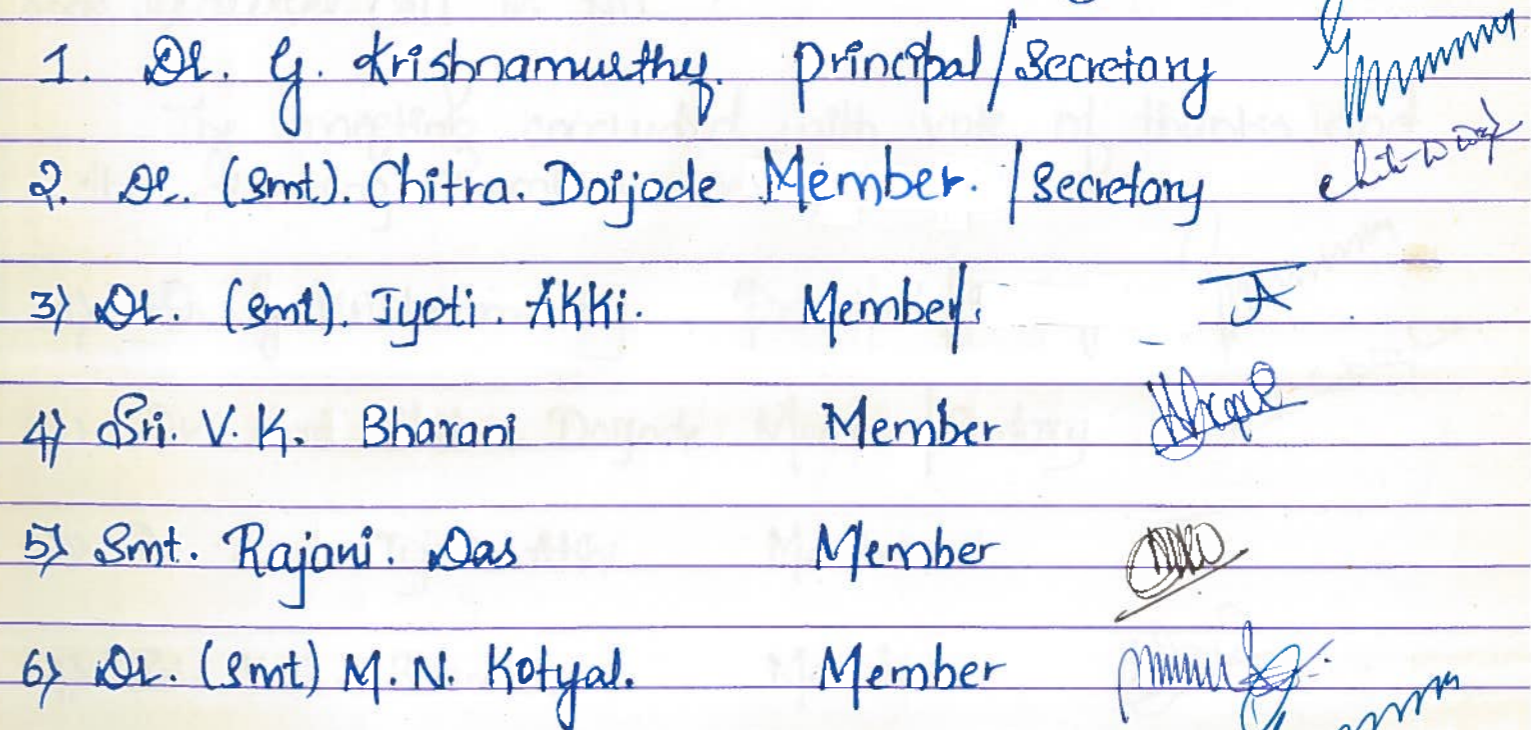 1. Dr. G. Krishnamurthy. Principal/Secretary
2. Dr. (Smt). Chitra. Doijode Member. /Secretary
3) Dr. (Smt). Jyoti. Akki. Member/.
4) Sri. V.K. Bharani Member
5) Smt. Rajani. Das Member
6) Dr. (Smt) M.N. Kotyal. Member